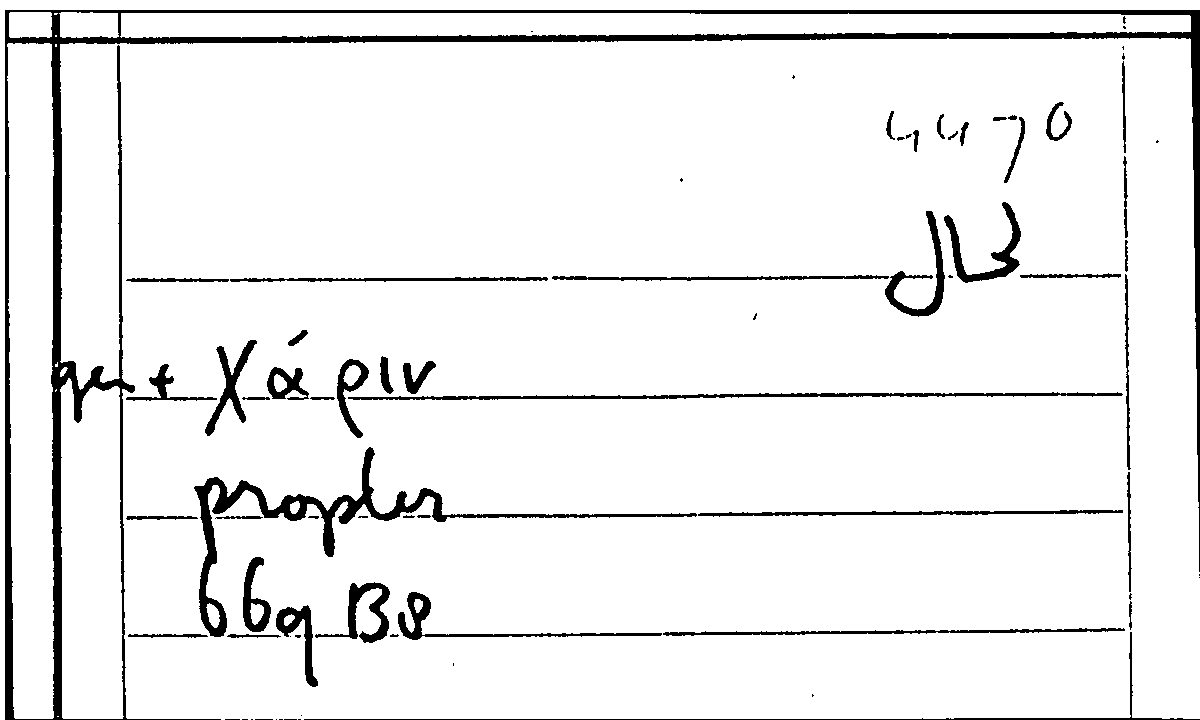 4470
gen + χάριν
propter
669 B8